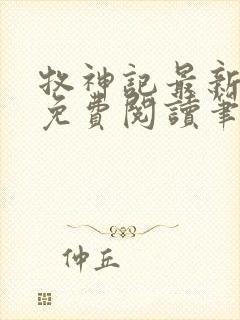 牧神記最新
免費閱讀筆
仲丘